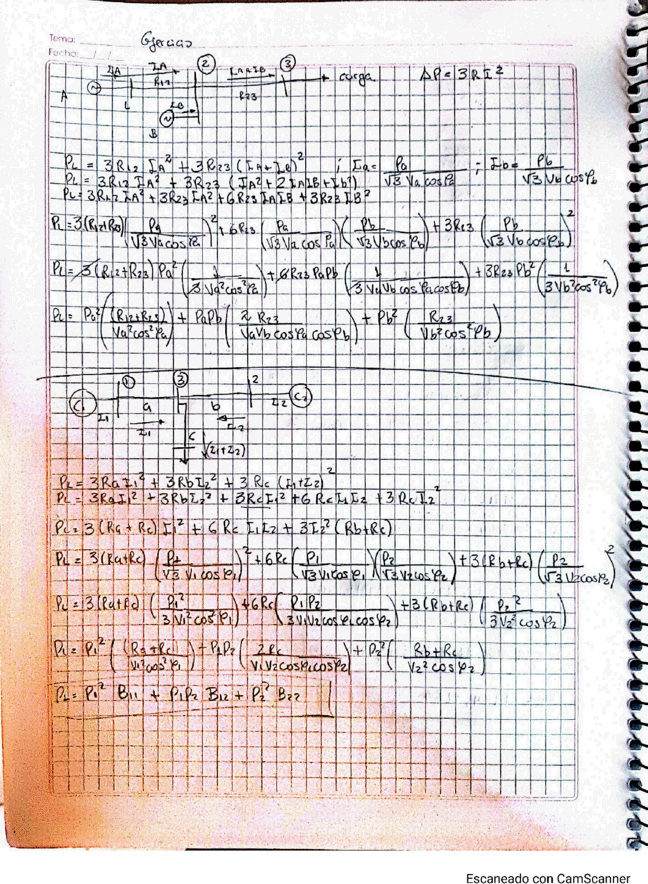 Tema:
Ejercicio
Fecha:
IA IA ② IA+IB ③
R12 R23 carga ΔP = 3RI²
A 1 IB
B
PL = 3R12 IA² + 3R23 (IA+IB)² ; Ia = Pa/(√3 Va cosφa) ; Ib = Pb/(√3 Vb cosφb)
PL = 3R12 IA² + 3R23 (IA² + 2IAIB + Ib²)
PL = 3R12 IA² + 3R23 IA² + 6R23 IAIB + 3R23 IB²
PL = 3(R12+R23) (Pa/(√3 Va cosφa))² + 6R23 (Pa/(√3 Va cosφa)) (Pb/(√3 Vb cosφb)) + 3R23 (Pb/(√3 Vb cosφb))²
PL = 3(R12+R23) Pa² (1/(3 Va² cos²φa)) + 6R23 PaPb (1/(3 VaVb cosφa cosφb)) + 3R23 Pb² (1/(3Vb² cos²φb))
PL = Pa² ((R12+R23)/(Va² cos²φa)) + PaPb (2 R23/(VaVb cosφa cosφb)) + Pb² (R23/(Vb² cos²φb))
① ③ 2
G1 a b I2 G2
I1 I1 I2
c (I1+I2)
PL = 3RaI1² + 3RbI2² + 3Rc (I1+I2)²
PL = 3RaI1² + 3RbI2² + 3RcI1² + 6RcI1I2 + 3RcI2²
PL = 3(Ra+Rc) I1² + 6Rc I1I2 + 3I2² (Rb+Rc)
PL = 3(Ra+Rc) (P1/(√3 V1 cosφ1))² + 6Rc (P1/(√3 V1 cosφ1)) (P2/(√3 V2 cosφ2)) + 3(Rb+Rc) (P2/(√3 V2 cosφ2))²
PL = 3(Ra+Rc) (P1²/(3 V1² cos²φ1)) + 6Rc (P1P2/(3V1V2 cosφ1 cosφ2)) + 3(Rb+Rc) (P2²/(3V2² cosφ2))
PL = P1² ((Ra+Rc)/(V1² cos²φ1)) + P1P2 (2Rc/(V1V2 cosφ1 cosφ2)) + P2² (Rb+Rc/(V2² cosφ2))
PL = P1² B11 + P1P2 B12 + P2² B22
Escaneado con CamScanner